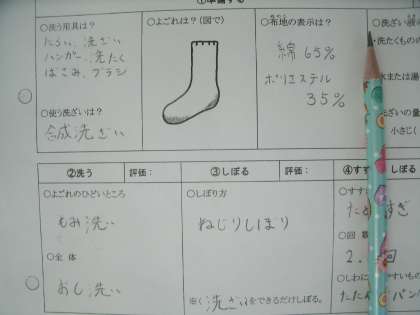 ①準備する
○洗う用具は?
たらい、洗ざい
ハンガー、洗たく
ばさみ、ブラシ
○使う洗ざいは?
合成洗ざい
○よごれは?(図で)
○布地の表示は?
綿 65%
ポリエステル
35%
○洗ざい
洗たくもの
水または湯
洗ざいの量
小さじ
②洗う
評価:
○よごれのひどいところ
もみ洗い
○全体
おし洗い
③しぼる
評価:
○しぼり方
ねじりしぼり
※( 洗ざいをできるだけしぼる。
④すす
しぼる
○すす
すぎ
○回
2.
回
○しわに
すいもの
パン